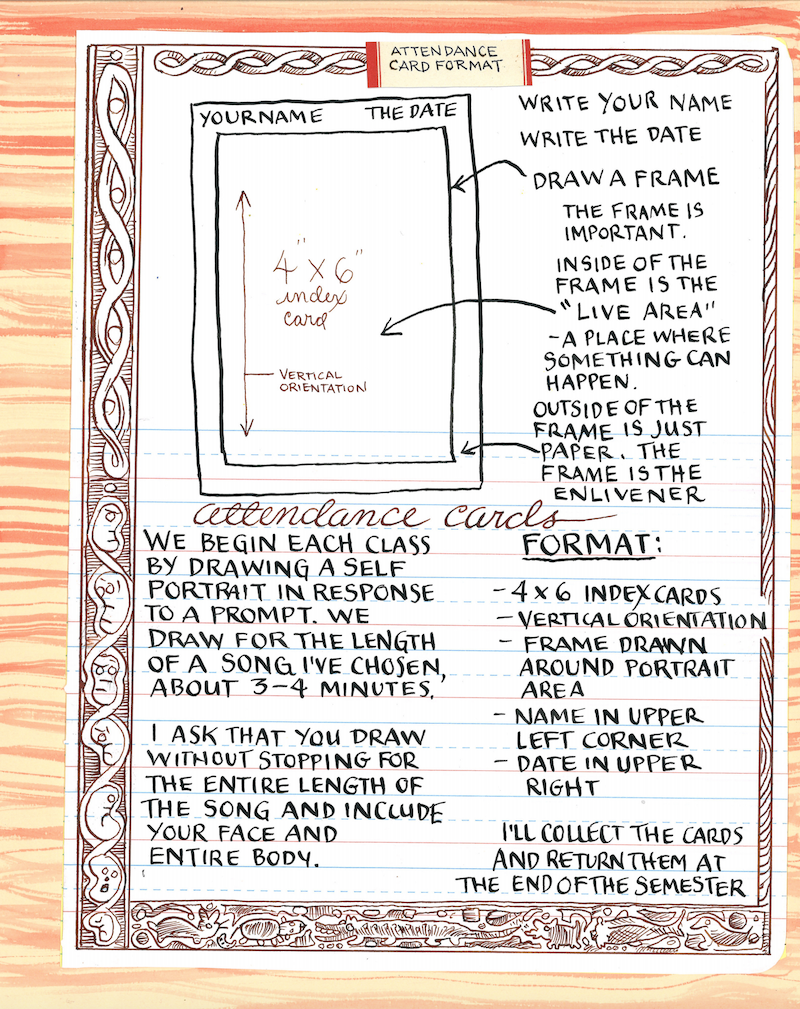 ATTENDANCE
CARD FORMAT
YOUR NAME THE DATE
4" x 6"
index
card
VERTICAL
ORIENTATION
WRITE YOUR NAME
WRITE THE DATE
DRAW A FRAME
THE FRAME IS
IMPORTANT.
INSIDE OF THE
FRAME IS THE
"LIVE AREA"
-A PLACE WHERE
SOMETHING CAN
HAPPEN.
OUTSIDE OF THE
FRAME IS JUST
PAPER. THE
FRAME IS THE
ENLIVENER
attendance cards
WE BEGIN EACH CLASS
BY DRAWING A SELF
PORTRAIT IN RESPONSE
TO A PROMPT. WE
DRAW FOR THE LENGTH
OF A SONG I'VE CHOSEN,
ABOUT 3-4 MINUTES.
I ASK THAT YOU DRAW
WITHOUT STOPPING FOR
THE ENTIRE LENGTH OF
THE SONG AND INCLUDE
YOUR FACE AND
ENTIRE BODY.
FORMAT:
- 4 x 6 INDEX CARDS
- VERTICAL ORIENTATION
- FRAME DRAWN
AROUND PORTRAIT
AREA
- NAME IN UPPER
LEFT CORNER
- DATE IN UPPER
RIGHT
I'LL COLLECT THE CARDS
AND RETURN THEM AT
THE END OF THE SEMESTER